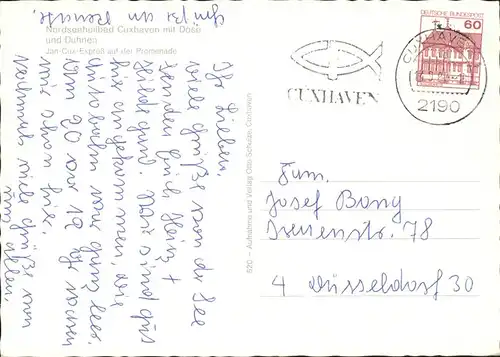 Nordseeheilbad Cuxhaven mit Döse
und Duhnen
Jan-Cux-Expreß auf der Promenade
Gruß an Renate.
Ihr Lieben,
viele Grüße von der See
senden Euch, Heinz +
Hildegund. Wir sind gut
hier angekommen, die
Autobahn war ganz leer.
um 20 vor 12 Uhr waren
wir schon hier.
Nochmals viele Grüße von
uns allen.
620 – Aufnahme und Verlag Otto Schulze, Cuxhaven
CUXHAVEN
DEUTSCHE BUNDESPOST
60
CUXHAVEN
2190
Fam.
Josef Bong
Irenenstr. 78
4 Düsseldorf 30